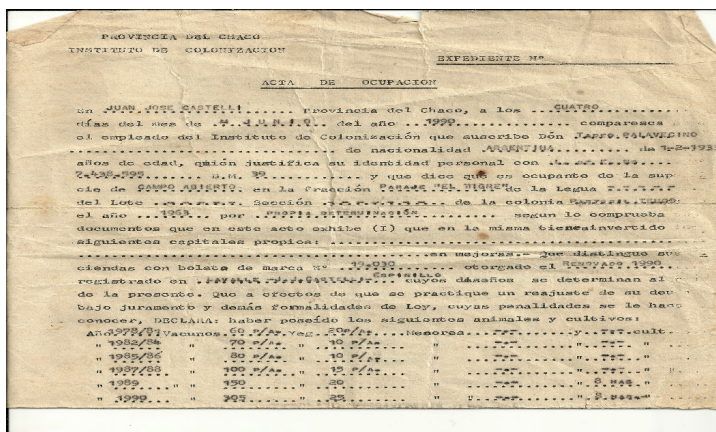 PROVINCIA DEL CHACO
INSTITUTO DE COLONIZACION
EXPEDIENTE Nº
ACTA DE OCUPACION
En JUAN JOSE CASTELLI Provincia del Chaco, a los CUATRO
días del mes de JUNIO del año 1990 comparesca
el empleado del Instituto de Colonización que suscribe Dón PALAVECINO
de nacionalidad ARGENTINA de
años de edad, quién justifica su identidad personal con
7.438.595 D.M. 39 y que dice que es ocupante de la sup
cie de CAMPO ABIERTO. en la fracción PARAJE "EL TIGRE" de la Legua
del Lote Sección de la colonia
el año 1963 por PROPIA DETERMINACIÓN segun lo comprueba
documentos que en este acto exhibe (I) que en la misma tiene invertido
siguientes capitales propios:
en mejoras.- Que distingue su
ciendas con boleta de marca Nº 19.030 otorgado el RENOVADO 1990
registrado en LAVALLE J.J.CASTELLI ESPINILLO cuyos diseños se determinan al
de la presente. Que a efectos de que se practique un reajuste de su deu
bajo juramento y demás formalidades de Ley, cuyas penalidades se le hace
conocer, DECLARA: haber poseído los siguientes animales y cultivos:
Vacunos 60 P/A. Yeg. 20 Menores y cult.
" 1982/84 " 70 P/A. " 10 P/A. " " "
" 1985/86 " 80 P/A. " 10 P/A. " " "
" 1987/88 " 100 P/A. " 15 P/A. " " "
" 1989 " " 150 " 20 " " 8 HAS. "
" 1990 " 305 " 25 " "